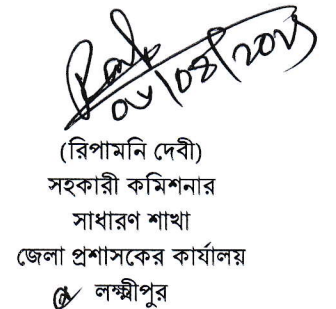 (রিপামনি দেবী)
সহকারী কমিশনার
সাধারণ শাখা
জেলা প্রশাসকের কার্যালয়
লক্ষ্মীপুর